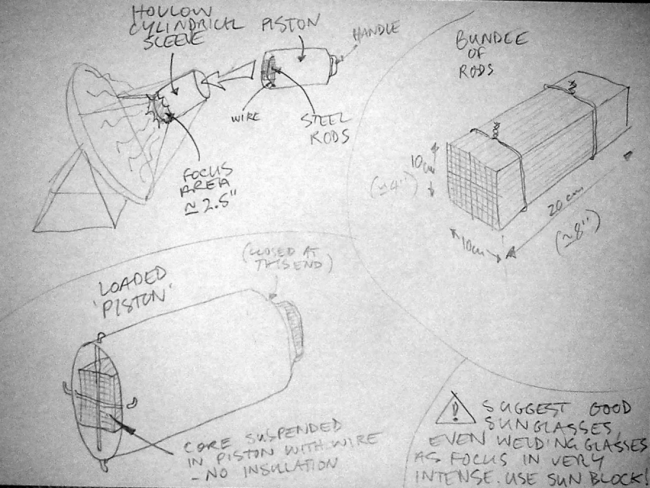 HOLLOW
CYLINDRICAL
SLEEVE
PISTON
HANDLE
WIRE
STEEL
RODS
FOCUS
AREA
≃ 2.5"
BUNDLE
OF
RODS
10cm
(≃4")
10cm
20cm
(≃8")
LOADED
'PISTON'
(CLOSED AT
THIS END)
CORE SUSPENDED
IN PISTON WITH WIRE
- NO INSULATION
! SUGGEST GOOD
SUNGLASSES,
EVEN WELDING GLASSES
AS FOCUS IN VERY
INTENSE. USE SUN BLOCK!